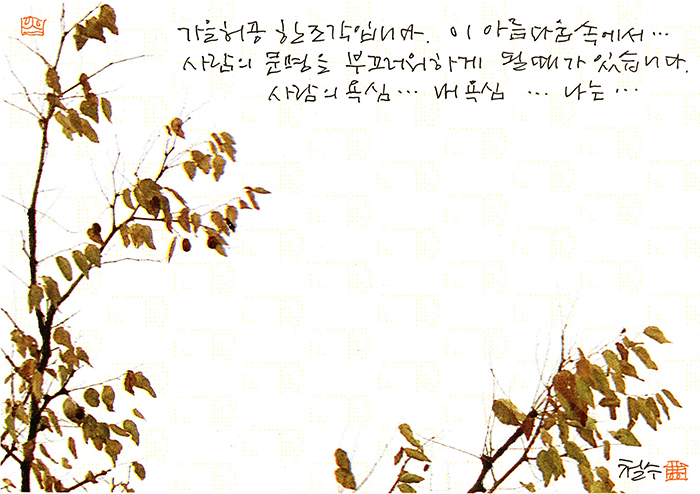 가을허공 한조각입니다. 이 아름다움속에서…
사람의 문명을 부끄러워하게 될때가 있습니다.
사람의욕심… 내욕심 … 나는…
철수